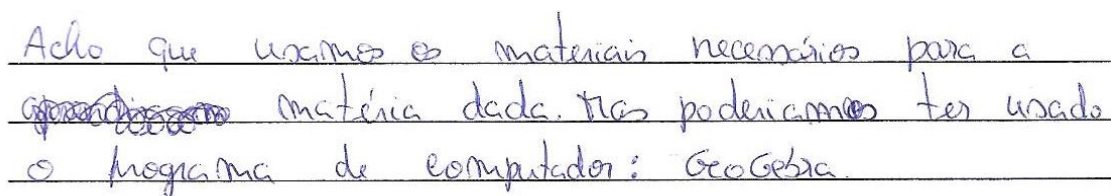 Acho que usamos os materiais necessários para a
matéria dada. Mas poderiamos ter usado
o programa de computador: GeoGebra.